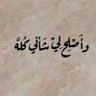 وَأَصْلِحْ لِيْ شَأْنِي كُلَّهُ